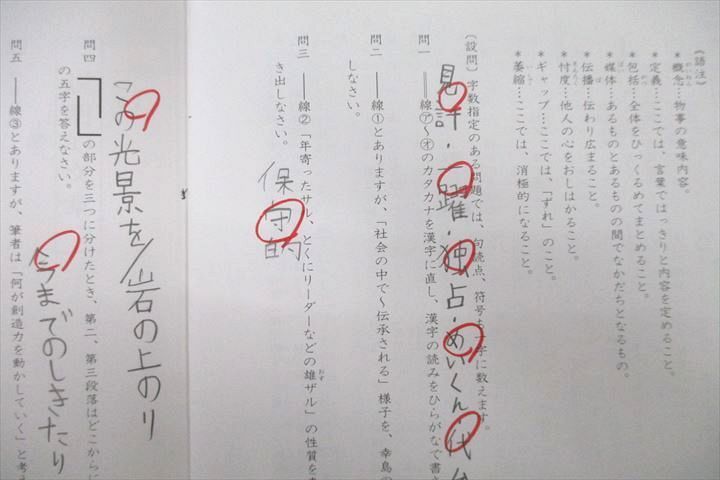 《語注》
＊概念…物事の意味内容。
がいねん
＊定義…ここでは、言葉ではっきりと内容を定めること。
ていぎ
＊包括…全体をひっくるめてまとめること。
＊媒体…あるものとあるものの間でなかだちとなるもの。
ばいたい
＊伝播…伝わり広まること。
＊忖度…他人の心をおしはかること。
そんたく
＊ギャップ…ここでは、「ずれ」のこと。
＊萎縮…ここでは、消極的になること。
いしゅく
〔設問〕字数指定のある問題では、句読点、符号も一字に数えます。
見許・一躍・独占・めいくん 代
問一 ＝＝線㋐〜㋔のカタカナを漢字に直し、漢字の読みをひらがなで書き
なさい。
問二 ――線①とありますが、「社会の中で〜伝承される」様子を、幸島の
問三 ――線②「年寄ったサル、とくにリーダーなどの雄ザル」の性質を
おす
き出しなさい。
保守的
この光景を/岩の上のり
問四 ［ ］の部分を三つに分けたとき、第二、第三段落はどこからに
の五字を答えなさい。
今までのしきたり
問五 ――線③とありますが、筆者は「何が創造力を動かしていく」と考え